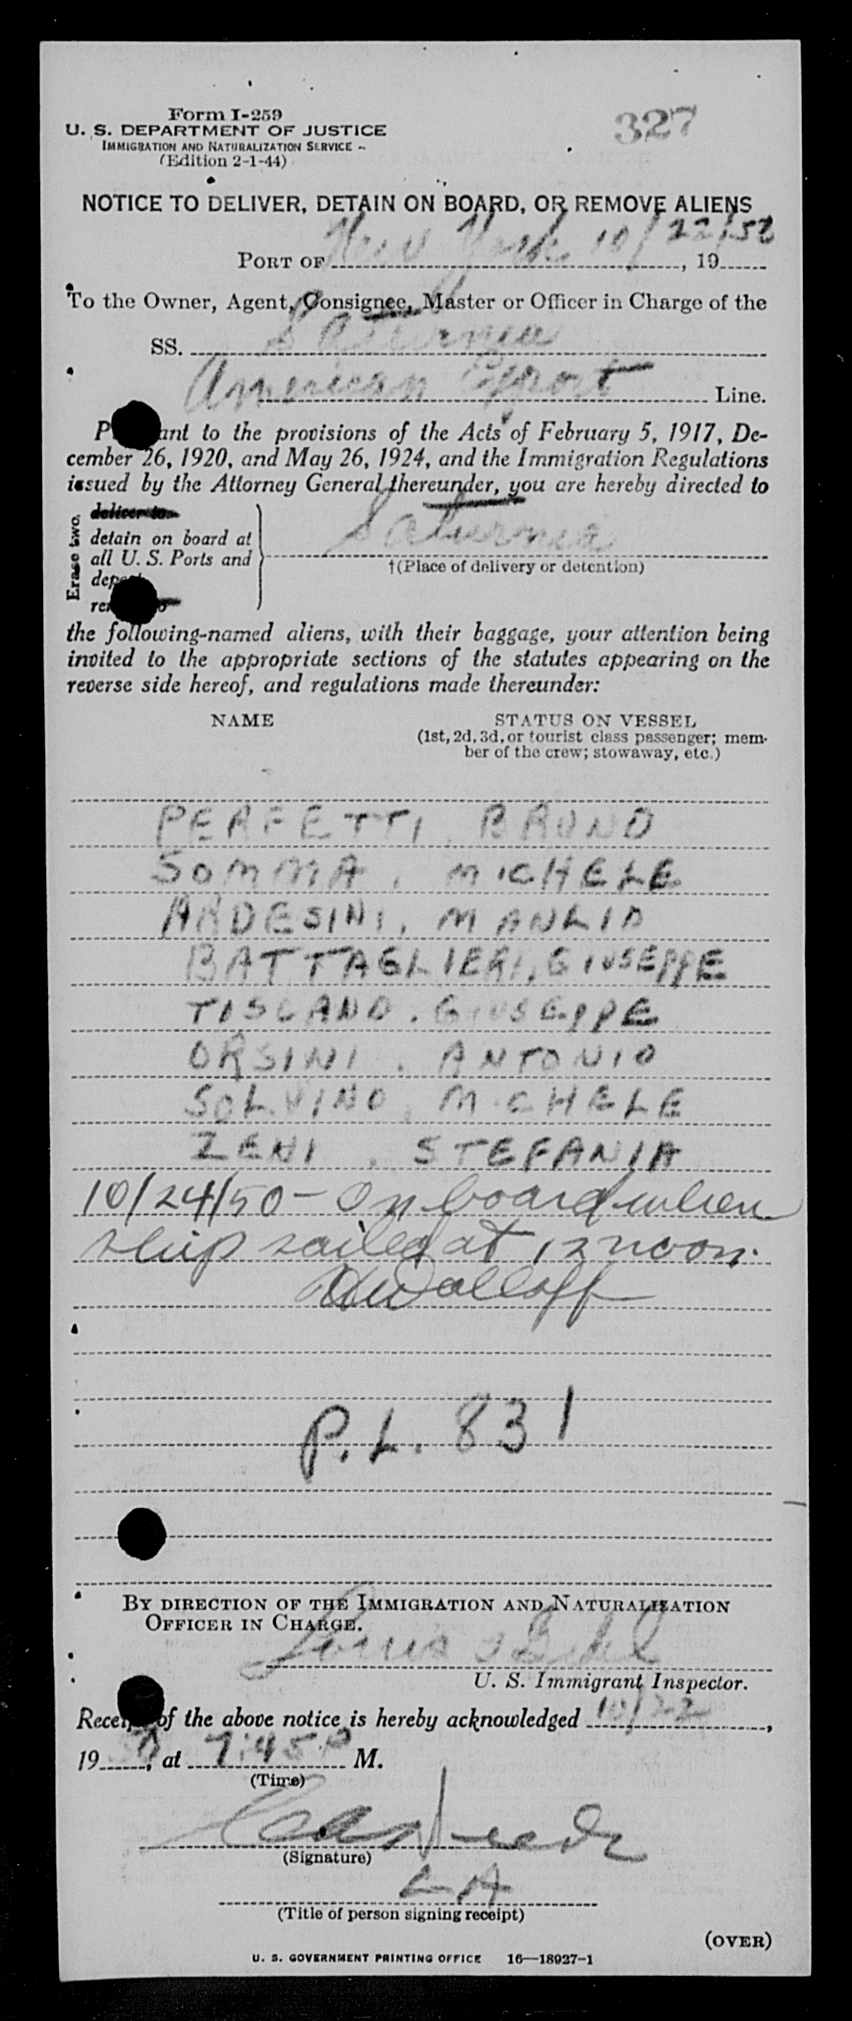 Form I-259
327
U. S. DEPARTMENT OF JUSTICE
IMMIGRATION AND NATURALIZATION SERVICE
(Edition 2-1-44)
NOTICE TO DELIVER, DETAIN ON BOARD, OR REMOVE ALIENS
PORT OF New York 10/22/50, 19
To the Owner, Agent, Consignee, Master or Officer in Charge of the
SS. Saturnia
American Export Line.
Pursuant to the provisions of the Acts of February 5, 1917, De-
cember 26, 1920, and May 26, 1924, and the Immigration Regulations
issued by the Attorney General thereunder, you are hereby directed to
Erase two.
deliver to
detain on board at
all U. S. Ports and
Saturnia
†(Place of delivery or detention)
the following-named aliens, with their baggage, your attention being
invited to the appropriate sections of the statutes appearing on the
reverse side hereof, and regulations made thereunder:
NAME STATUS ON VESSEL
(1st, 2d, 3d, or tourist class passenger; mem-
ber of the crew; stowaway, etc.)
PERFETTI, BRUNO
SOMMA, MICHELE
ARDESINI, MANLIO
BATTAGLIERI, GIUSEPPE
TISCANO, GIUSEPPE
ORSINI, ANTONIO
SOLVINO, MICHELE
ZENI, STEFANIA
10/24/50 - On board when
ship sailed at 12 noon.
P.L. 831
BY DIRECTION OF THE IMMIGRATION AND NATURALIZATION
OFFICER IN CHARGE.
Louis
U. S. Immigrant Inspector.
Receipt of the above notice is hereby acknowledged 10/22,
1950, at 7:45 P M.
(Time)
(Signature)
(Title of person signing receipt)
(OVER)
U. S. GOVERNMENT PRINTING OFFICE 16—18927-1